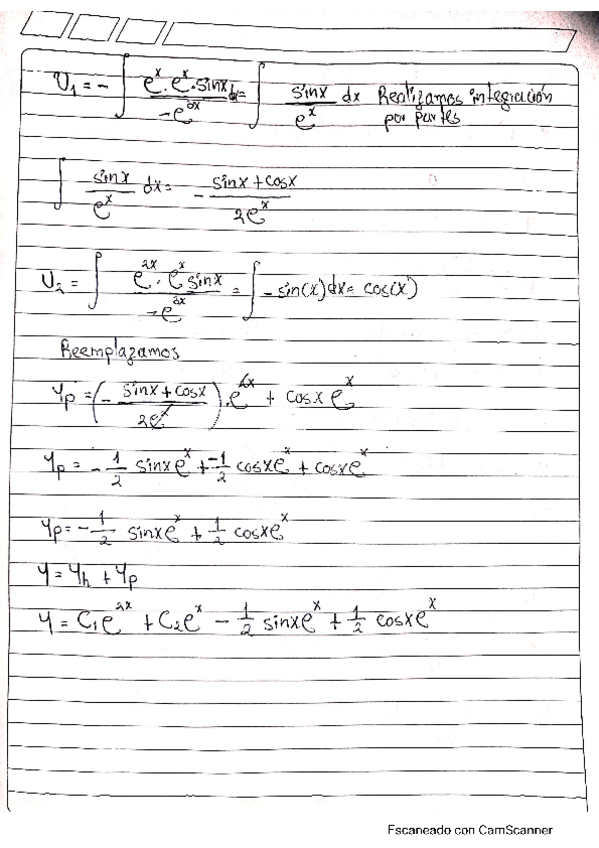 U₁ = - ∫ (e^x · e^x · sinx)/(-e^3x) dx = ∫ sinx/e^x dx Realizamos integración
por partes
∫ sinx/e^x dx = - (sinx + cosx)/(2e^x)
U₂ = ∫ (e^2x · e^x sinx)/(-e^3x) = ∫ - sin(x) dx = cos(x)
Reemplazamos
Yp = (- (sinx + cosx)/(2e^x)) · e^2x + cosx e^x
Yp = - 1/2 sinxe^x + -1/2 cosxe^x + cosxe^x
Yp = - 1/2 sinxe^x + 1/2 cosxe^x
Y = Yh + Yp
Y = C₁e^2x + C₂e^x - 1/2 sinxe^x + 1/2 cosxe^x
Escaneado con CamScanner